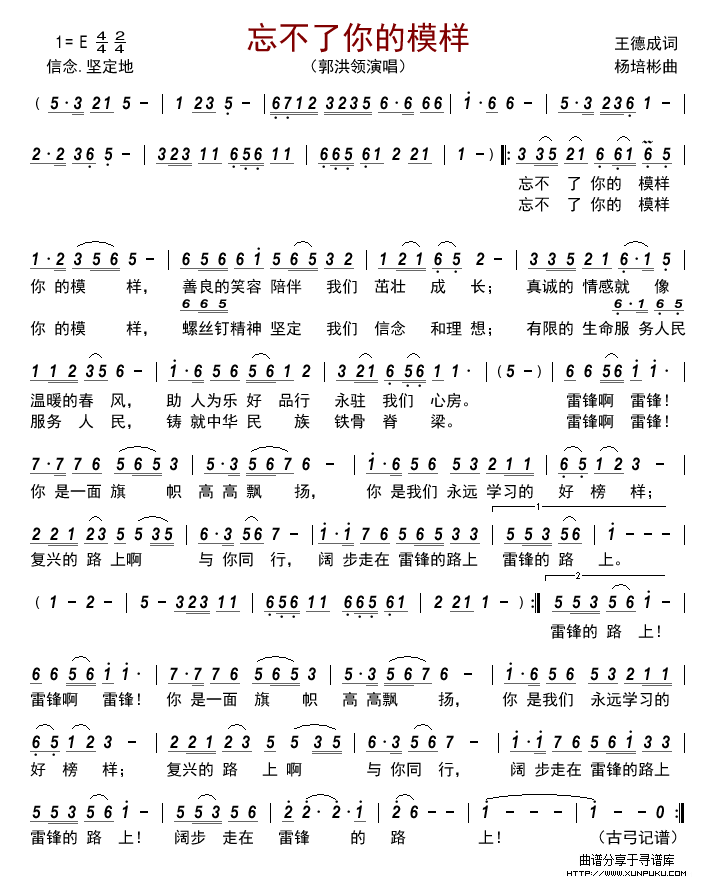 忘不了你的模样
1= E 4/4 2/4
王德成词
信念.坚定地
(郭洪领演唱)
杨培彬曲
( 5·3 21 5 - | 1 23 5 - | 6712 3235 6·6 66 | 1 - - - | 5·3 236 1 - |
2·2 36 5 - | 323 11 656 11 | 665 61 2 21 | 1 - ) ‖: 3 35 21 6 61 6 5 |
忘不 了 你的 模样
忘不 了 你的 模样
1·2 356 5 - | 6 5 6 6 1 5 65 3 2 | 1 21 6 5 2 - | 3 3 5 2 1 6·1 5 |
你 的 模 样, 善良的笑容 陪伴 我们 茁壮 成 长; 真诚的 情感就 像
6 6 5 6·1 6 5
你 的 模 样, 螺丝钉精神 坚定 我们 信念 和理 想; 有限的 生命服 务人民
1 1 2 35 6 - | 1·6 5 6 561 2 | 3 21 6 56 1 1· | (5 -) | 6 6 56 1 1· |
温暖的春 风, 助 人为乐 好 品行 永驻 我们 心房。 雷锋啊 雷锋!
服务 人 民, 铸 就中华 民 族 铁骨 脊 梁。 雷锋啊 雷锋!
7·7 7 6 565 3 | 5·3 567 6 - | 1·6 5 6 5 3 2 1 1 | 6 5 1 2 3 - |
你 是一面 旗 帜 高 高 飘 扬, 你 是我们 永远 学习的 好 榜 样;
2 2 1 23 5 535 | 6·3 56 7 - | 1·1 7 6 5 6 5 3 3 | 5 5 3 56 | 1 - - - |
1
复兴的 路 上啊 与 你同 行, 阔 步走在 雷锋的路上 雷锋的 路 上。
( 1 - 2 - | 5 - 323 11 | 656 11 665 61 | 2 21 1 - ) :‖ 5 5 3 5 6 1 - |
2
雷锋的 路 上!
6 6 56 1 1· | 7·7 7 6 565 3 | 5·3 567 6 - | 1·6 5 6 5 3 2 1 1 |
雷锋啊 雷锋! 你 是一面 旗 帜 高 高飘 扬, 你 是我们 永远学习的
6 5 1 2 3 - | 2 2 1 2 3 5 5 35 | 6·3 56 7 - | 1·1 7 6 5 6 1 3 3 |
好 榜 样; 复兴的 路 上 啊 与 你同 行, 阔 步走在 雷锋的路上
5 5 3 5 6 1 - | 5 5 3 5 6 | 2 2· 2·1 | 1 - - - | 1 - - 0 :‖
雷锋的 路 上! 阔步 走在 雷锋 的 路 上! (古弓记谱)
曲谱分享于寻谱库
HTTP://WWW.XUNPUKU.COM